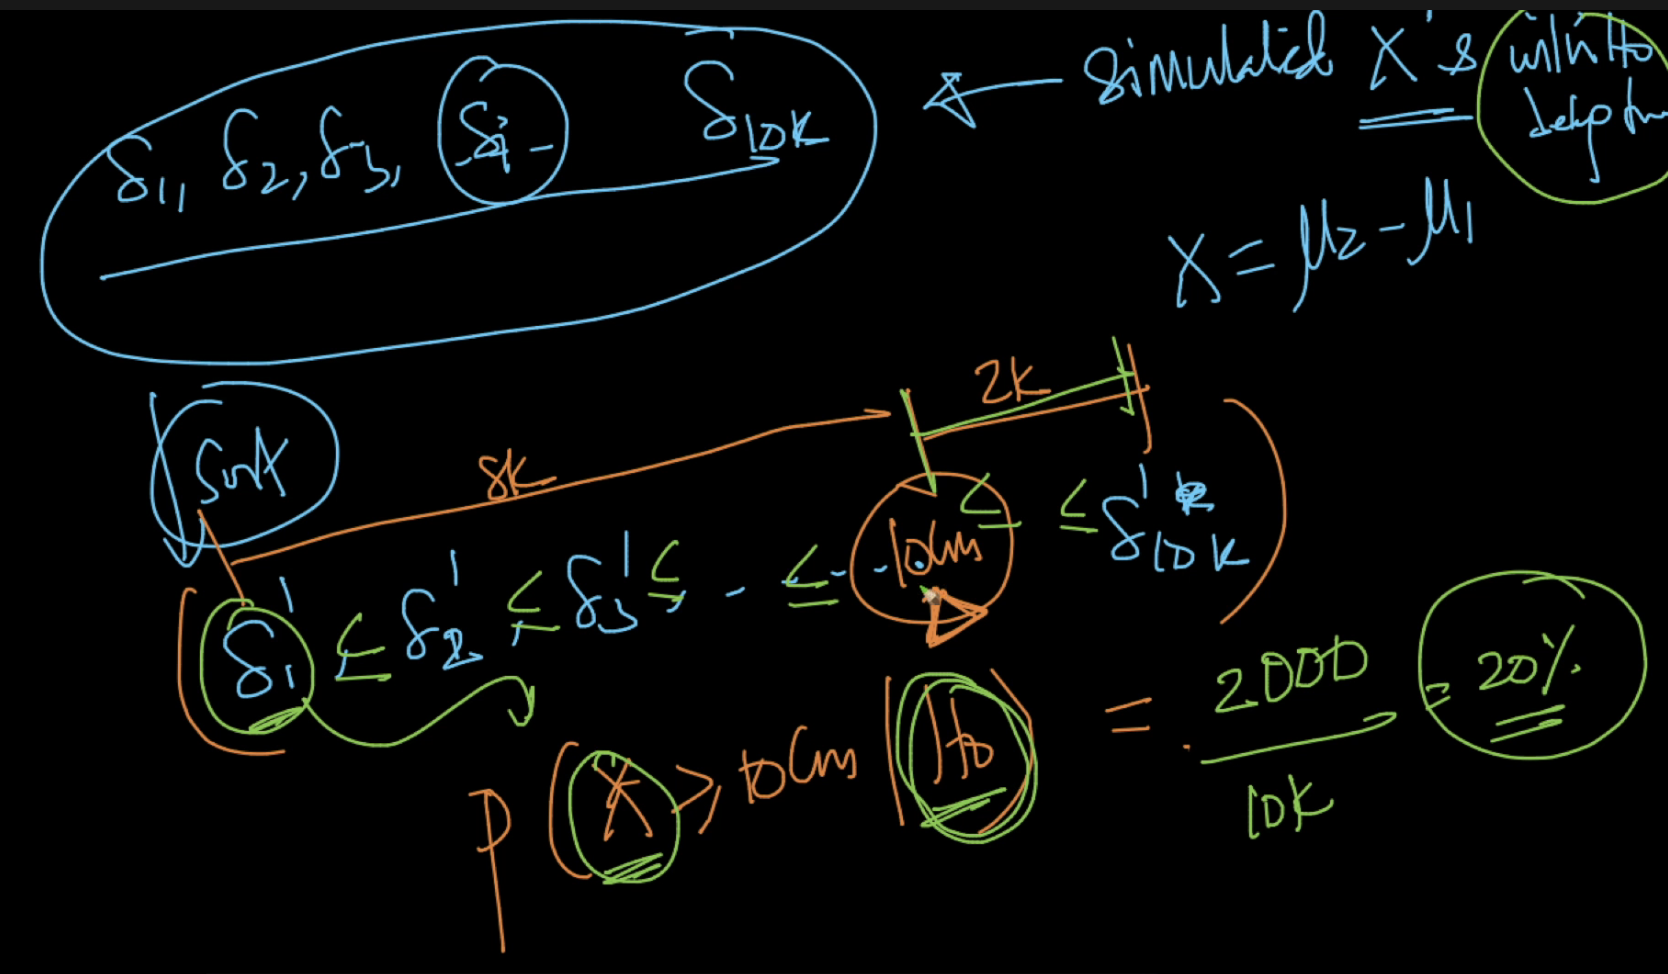 δ1, δ2, δ3, - δi - δ10K ← simulated X's with H0
X = μ2 - μ1
2K
8K
Sort
(δ'1 ≤ δ'2, ≤ δ'3, ≤ - ≤ - - 10cm ≤ ≤ δ'10K)
P(X ≥ 10cm | H0) = 2000 / 10K = 20%